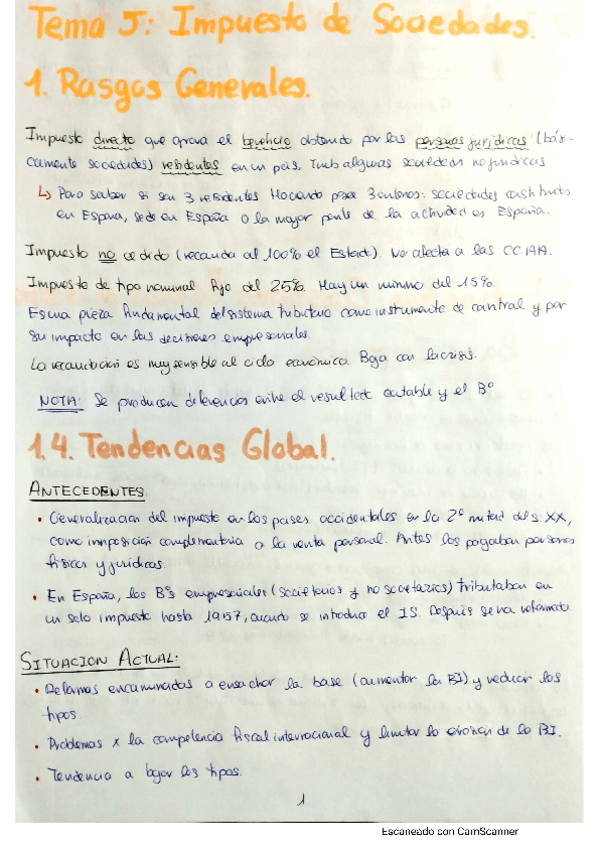 Tema 5: Impuesto de Sociedades.
1. Rasgos Generales.
Impuesto directo que grava el beneficio obtenido por las personas jurídicas (bási-
camente sociedades) residentes en un país. algunas sociedades no jurídicas
↳ Para saber si son residentes Hacienda pone 3 criterios: sociedades
en España, sede en España o la mayor parte de la actividad es España.
Impuesto no cedido (recauda al 100% el Estado). No afecta a las CCAA.
Impuesto de tipo nominal fijo del 25%. Hay un mínimo del 15%.
Es una pieza fundamental del sistema tributario como instrumento de control y por
su impacto en las decisiones empresariales.
La recaudación es muy sensible al ciclo económico. Baja con la crisis.
NOTA: Se producen diferencias entre el resultado contable y el Bº
1.4. Tendencias Global.
ANTECEDENTES
• Generalización del impuesto en los países occidentales en la 2ª mitad del s. XX,
como imposición complementaria a la renta personal. Antes los pagaban personas
físicas y jurídicas.
• En España, los Bºs empresariales (societarios y no societarios) tributaban en
un solo impuesto hasta 1957, cuando se introduce el IS. Después se ha reformado.
SITUACION ACTUAL:
• encaminadas a ensachar la base (aumentar la BI) y reducir los
tipos.
• Problemas x la competencia fiscal internacional y limitar la erosión de la BI.
• Tendencia a bajar los tipos.
1
Escaneado con CamScanner